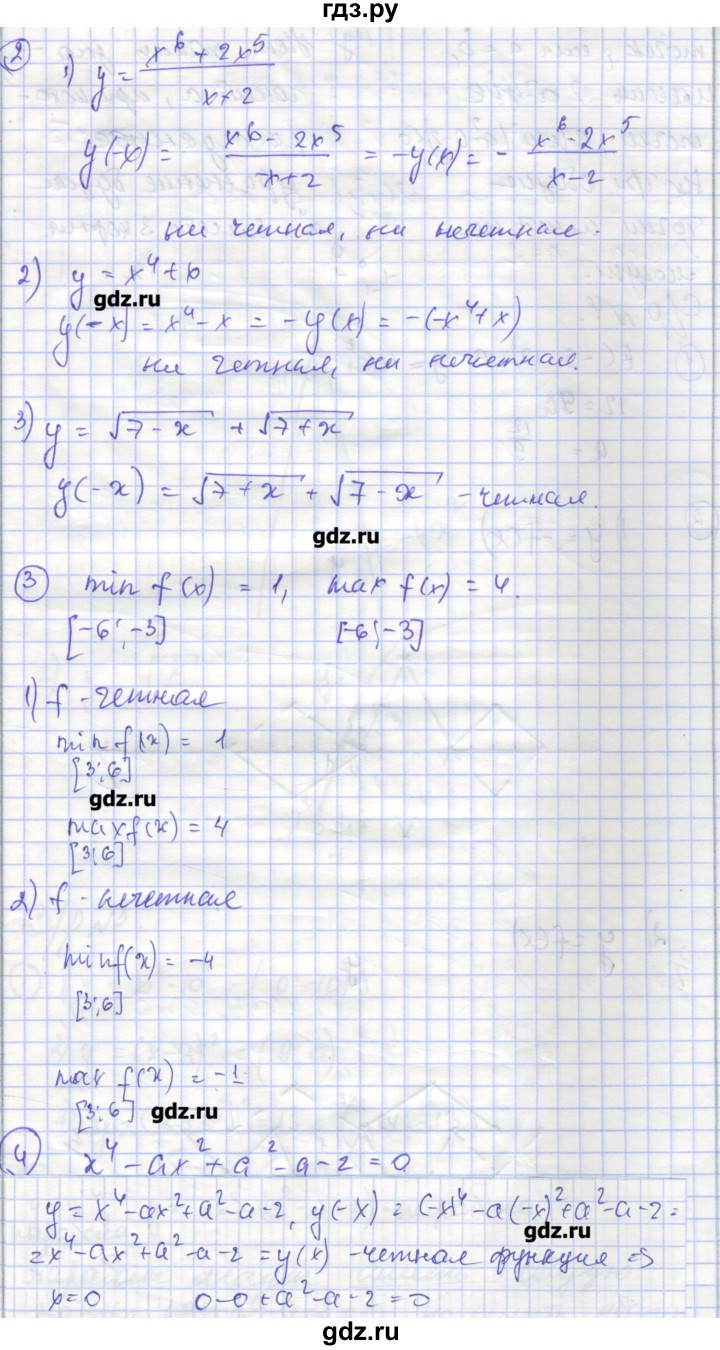 гдз.ру
2
1) y = (x^6 + 2x^5)/(x+2)
y(-x) = (x^6 - 2x^5)/(-x+2) = -y(x) = - (x^6 - 2x^5)/(x-2)
ни четная, ни нечетная.
2) y = x^4 + x
gdz.ru
y(-x) = x^4 - x = -y(x) = -(-x^4 + x)
ни четная, ни нечетная.
3) y = √(7-x) + √(7+x)
y(-x) = √(7+x) + √(7-x) - четная.
gdz.ru
3 min f(x) = 1, max f(x) = 4.
[-6; -3] [-6; -3]
1) f - четная
min f(x) = 1
[3; 6]
gdz.ru
max f(x) = 4
[3; 6]
2) f - нечетная
min f(x) = -4
[3; 6]
max f(x) = -1
[3; 6] gdz.ru
4 x^4 - ax^2 + a^2 - a - 2 = 0
y = x^4 - ax^2 + a^2 - a - 2, y(-x) = (-x)^4 - a(-x)^2 + a^2 - a - 2 =
gdz.ru
= x^4 - ax^2 + a^2 - a - 2 = y(x) - четная функция =>
x = 0 0 - 0 + a^2 - a - 2 = 0
gdz.ru